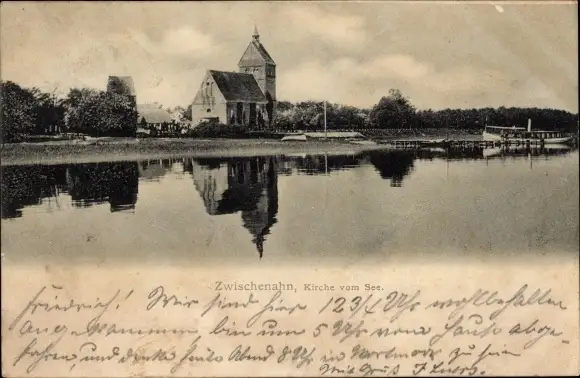 Zwischenahn, Kirche vom See.
Friedrich! Wir sind hier 12 3/4 Uhr wohlbehalten
angekommen bin um 5 Uhr von Haus abge-
fahren, und denke heute Abend 8 Uhr in zu sein
Gruß